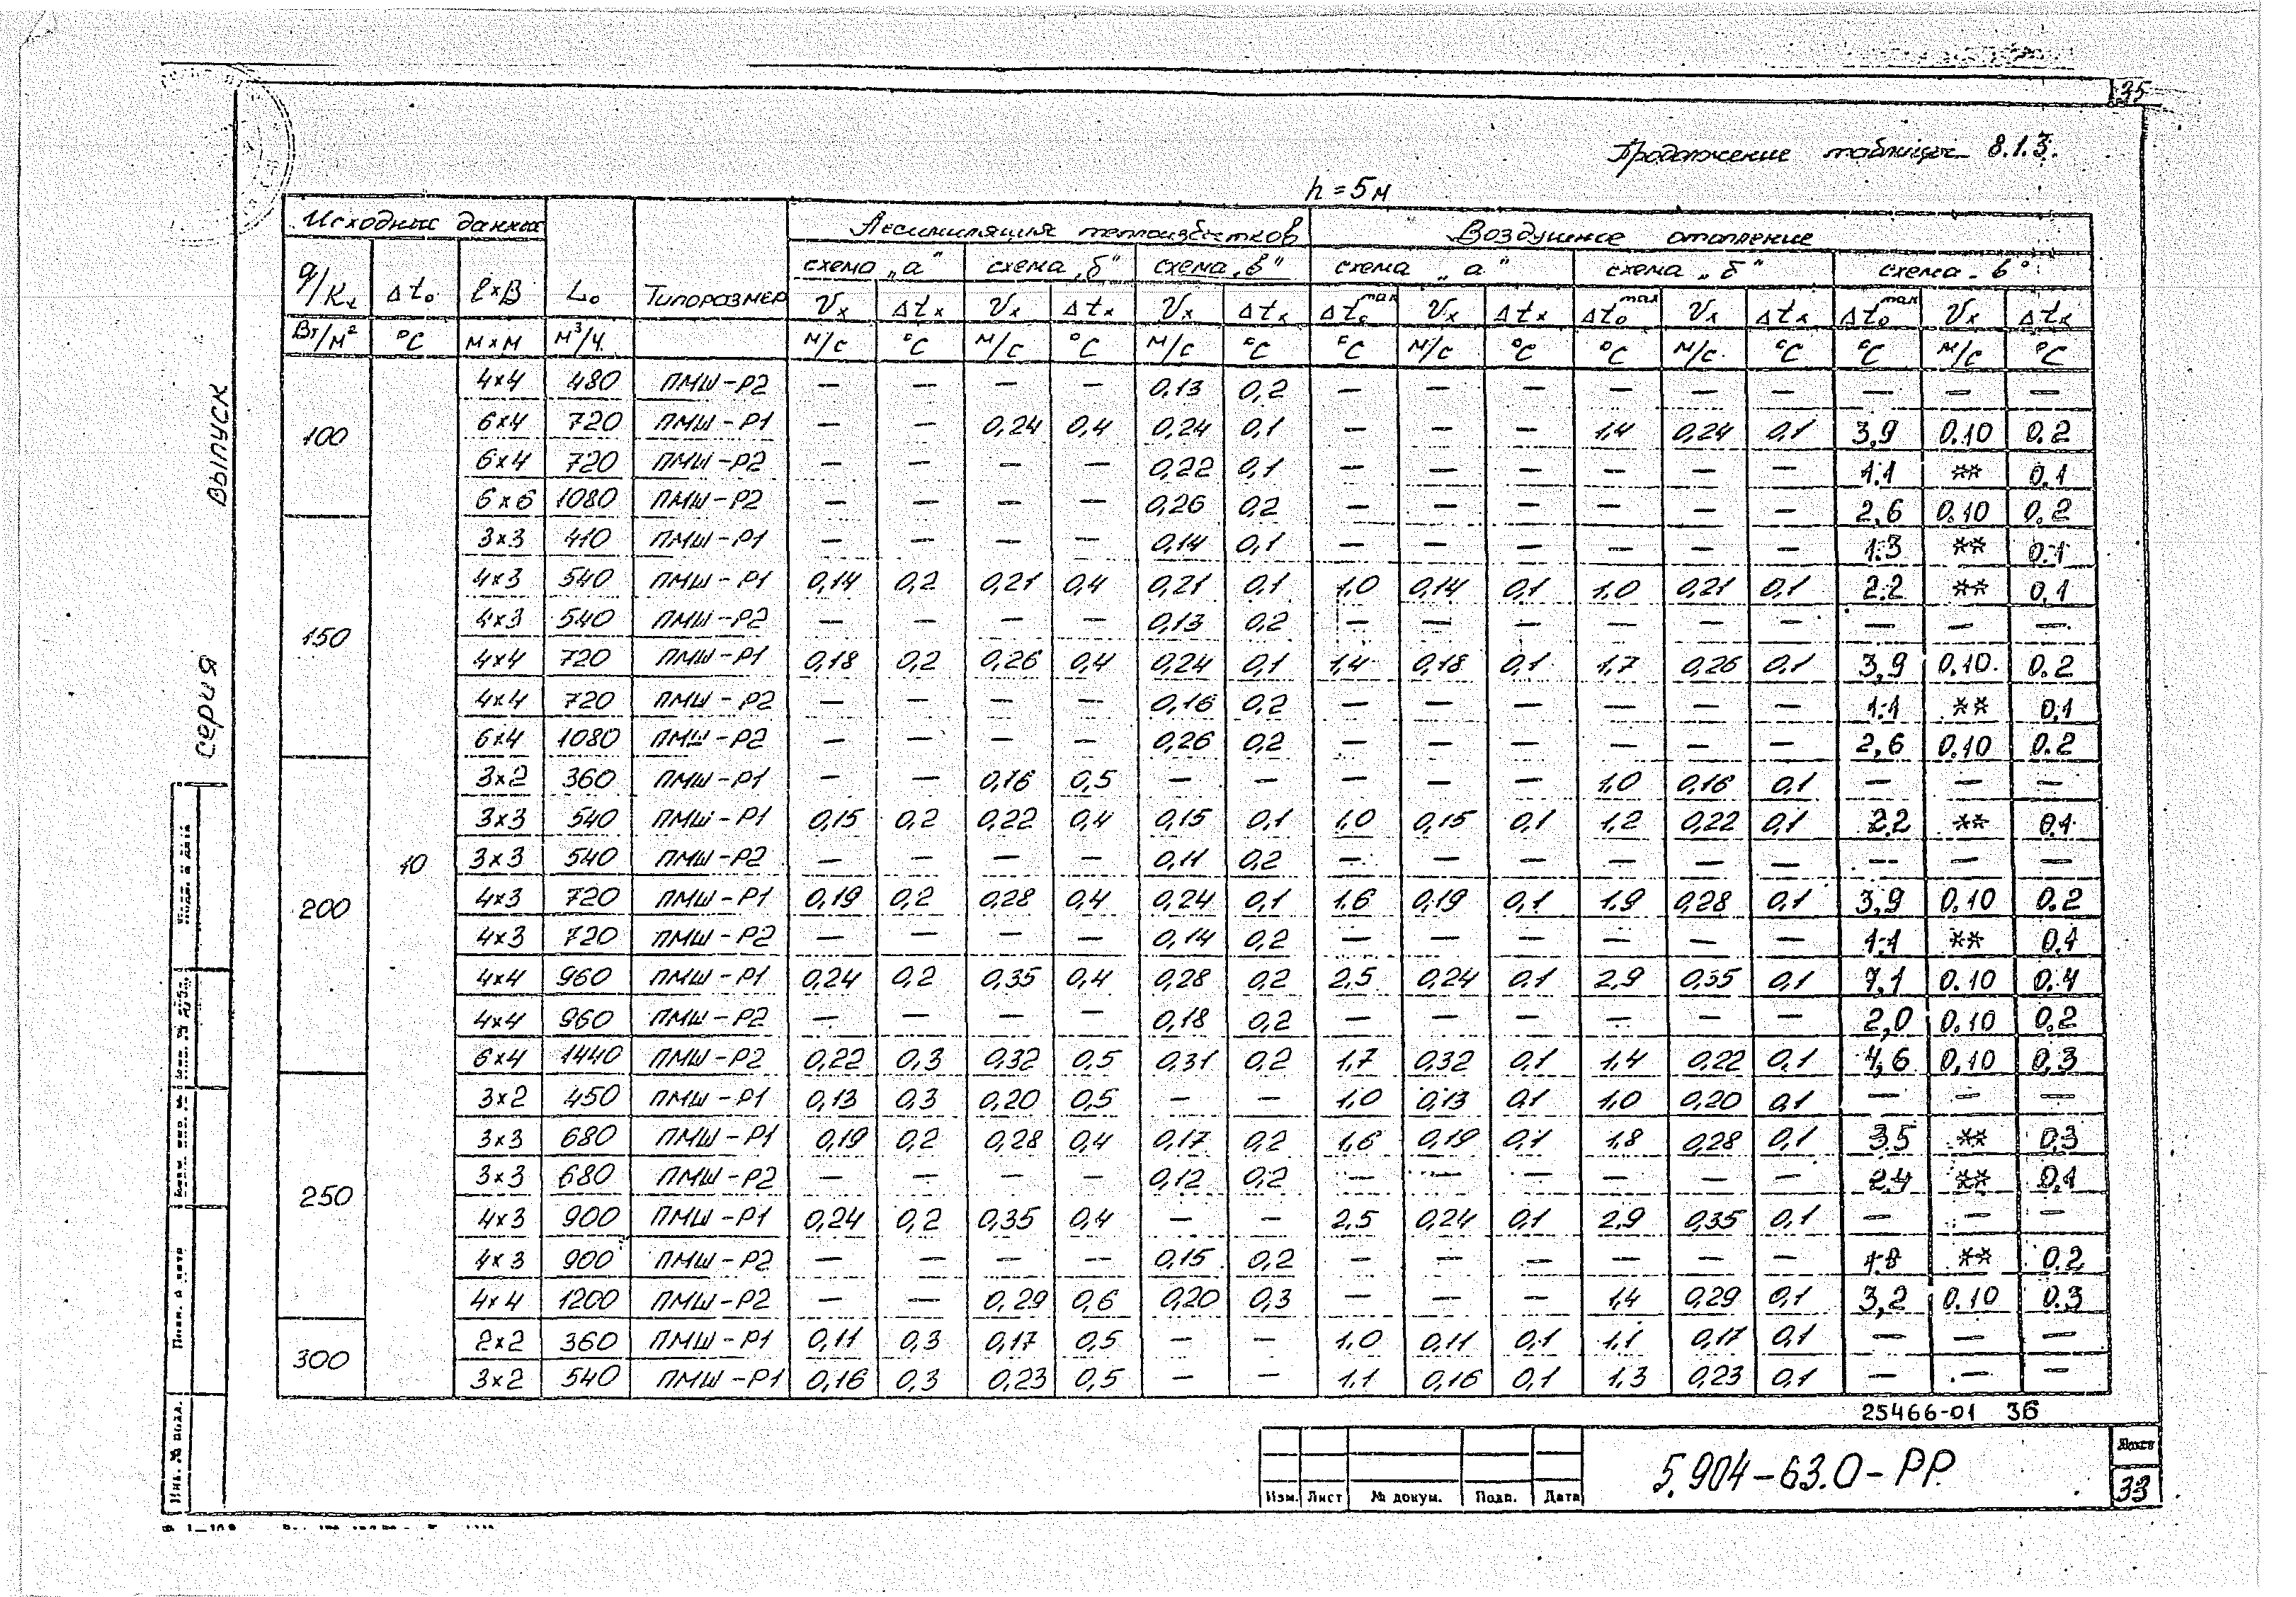 35
Продолжение таблицы 8.1.3.
h = 5м
Исходные данные | L₀ | Типоразмер | Ассимиляция теплоизбытков | Воздушное отопление
q/Kₜ | Δt₀ | l×B | схема „а" | схема „б" | схема „в" | схема „а" | схема „б" | схема „в"
Vx | Δtx | Vx | Δtx | Vx | Δtx | Δt₀ max | Vx | Δtx | Δt₀ max | Vx | Δtx | Δt₀ max | Vx | Δtx
Вт/м² | °С | м×м | м³/ч | м/с | °С | м/с | °С | м/с | °С | °С | м/с | °С | °С | м/с | °С | °С | м/с | °С
100 | 10 | 4×4 | 480 | ПМШ-Р2 | — | — | — | — | 0,13 | 0,2 | — | — | — | — | — | — | — | — | —
6×4 | 720 | ПМШ-Р1 | — | — | 0,24 | 0,4 | 0,24 | 0,1 | — | — | — | 1,4 | 0,24 | 0,1 | 3,9 | 0.10 | 0.2
6×4 | 720 | ПМШ-Р2 | — | — | — | — | 0,22 | 0,1 | — | — | — | — | — | — | 1.1 | ** | 0.1
6×6 | 1080 | ПМШ-Р2 | — | — | — | — | 0,26 | 0,2 | — | — | — | — | — | — | 2,6 | 0.10 | 0.2
150 | 3×3 | 410 | ПМШ-Р1 | — | — | — | — | 0,14 | 0,1 | — | — | — | — | — | — | 1.3 | ** | 0.1
4×3 | 540 | ПМШ-Р1 | 0,14 | 0,2 | 0,21 | 0,4 | 0,21 | 0,1 | 1,0 | 0,14 | 0,1 | 1,0 | 0,21 | 0,1 | 2.2 | ** | 0.1
4×3 | 540 | ПМШ-Р2 | — | — | — | — | 0,13 | 0,2 | — | — | — | — | — | — | — | — | —
4×4 | 720 | ПМШ-Р1 | 0,18 | 0,2 | 0,26 | 0,4 | 0,24 | 0,1 | 1,4 | 0,18 | 0,1 | 1,7 | 0,26 | 0,1 | 3,9 | 0.10 | 0.2
4×4 | 720 | ПМШ-Р2 | — | — | — | — | 0,16 | 0,2 | — | — | — | — | — | — | 1.1 | ** | 0.1
6×4 | 1080 | ПМШ-Р2 | — | — | — | — | 0,26 | 0,2 | — | — | — | — | — | — | 2,6 | 0.10 | 0.2
200 | 3×2 | 360 | ПМШ-Р1 | — | — | 0,16 | 0,5 | — | — | — | — | — | 1,0 | 0,16 | 0,1 | — | — | —
3×3 | 540 | ПМШ-Р1 | 0,15 | 0,2 | 0,22 | 0,4 | 0,15 | 0,1 | 1,0 | 0,15 | 0,1 | 1,2 | 0,22 | 0,1 | 2.2 | ** | 0.1
3×3 | 540 | ПМШ-Р2 | — | — | — | — | 0,11 | 0,2 | — | — | — | — | — | — | — | — | —
4×3 | 720 | ПМШ-Р1 | 0,19 | 0,2 | 0,28 | 0,4 | 0,24 | 0,1 | 1,6 | 0,19 | 0,1 | 1,9 | 0,28 | 0,1 | 3,9 | 0.10 | 0.2
4×3 | 720 | ПМШ-Р2 | — | — | — | — | 0,14 | 0,2 | — | — | — | — | — | — | 1.1 | ** | 0.1
4×4 | 960 | ПМШ-Р1 | 0,24 | 0,2 | 0,35 | 0,4 | 0,28 | 0,2 | 2,5 | 0,24 | 0,1 | 2,9 | 0,35 | 0,1 | 7,1 | 0.10 | 0.4
4×4 | 960 | ПМШ-Р2 | — | — | — | — | 0,18 | 0,2 | — | — | — | — | — | — | 2,0 | 0.10 | 0.2
6×4 | 1440 | ПМШ-Р2 | 0,22 | 0,3 | 0,32 | 0,5 | 0,31 | 0,2 | 1,7 | 0,32 | 0,1 | 1,4 | 0,22 | 0,1 | 4,6 | 0,10 | 0,3
250 | 3×2 | 450 | ПМШ-Р1 | 0,13 | 0,3 | 0,20 | 0,5 | — | — | 1,0 | 0,13 | 0,1 | 1,0 | 0,20 | 0,1 | — | — | —
3×3 | 680 | ПМШ-Р1 | 0,19 | 0,2 | 0,28 | 0,4 | 0,17 | 0,2 | 1,6 | 0,19 | 0,1 | 1,8 | 0,28 | 0,1 | 3.5 | ** | 0.3
3×3 | 680 | ПМШ-Р2 | — | — | — | — | 0,12 | 0,2 | — | — | — | — | — | — | 2.4 | ** | 0.1
4×3 | 900 | ПМШ-Р1 | 0,24 | 0,2 | 0,35 | 0,4 | — | — | 2,5 | 0,24 | 0,1 | 2,9 | 0,35 | 0,1 | — | — | —
4×3 | 900 | ПМШ-Р2 | — | — | — | — | 0,15 | 0,2 | — | — | — | — | — | — | 1.8 | ** | 0.2
4×4 | 1200 | ПМШ-Р2 | — | — | 0,29 | 0,6 | 0,20 | 0,3 | — | — | — | 1,4 | 0,29 | 0,1 | 3,2 | 0.10 | 0.3
300 | 2×2 | 360 | ПМШ-Р1 | 0,11 | 0,3 | 0,17 | 0,5 | — | — | 1,0 | 0,11 | 0,1 | 1,1 | 0,17 | 0,1 | — | — | —
3×2 | 540 | ПМШ-Р1 | 0,16 | 0,3 | 0,23 | 0,5 | — | — | 1,1 | 0,16 | 0,1 | 1,3 | 0,23 | 0,1 | — | — | —
25466-01 36
5.904-63.0-РР
Лист
33
Изм. Лист № докум. Подп. Дата
серия выпуск
Инв. № подл.